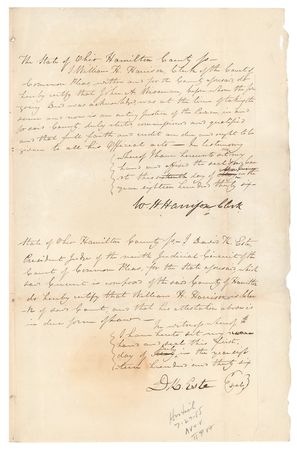 The State of Ohio Hamilton County Ss
I William H. Harrison Clerk of the Court of
Common Pleas within and for the County aforesaid do
hereby certify that John A. before whom the fore
going Deed was acknowledged was at the time of taking the
same and now is an acting Justice of the Peace in and
for said County duly elected commissioned and qualified
and that full faith and credit are due and ought to be
given to all his Official acts — In testimony
whereof I have hereunto set my
hand and affixed the seal of
this day of
year eighteen hundred thirty six
W H Harrison Clerk
State of Ohio Hamilton County Ss I David K. Este
President Judge of the ninth Judicial Circuit of the
Court of Common Pleas, for the State aforesaid, which
said Circuit is composed of the said County of Hamilton
do hereby certify that William H. Harrison is Cler
k of said Court, and that his attestation above is
in due form of law — In witness whereof I
have hereto set my name
hand and seal this first
day of in the year eigh
teen hundred and thirty six
D. K. Este (seal)